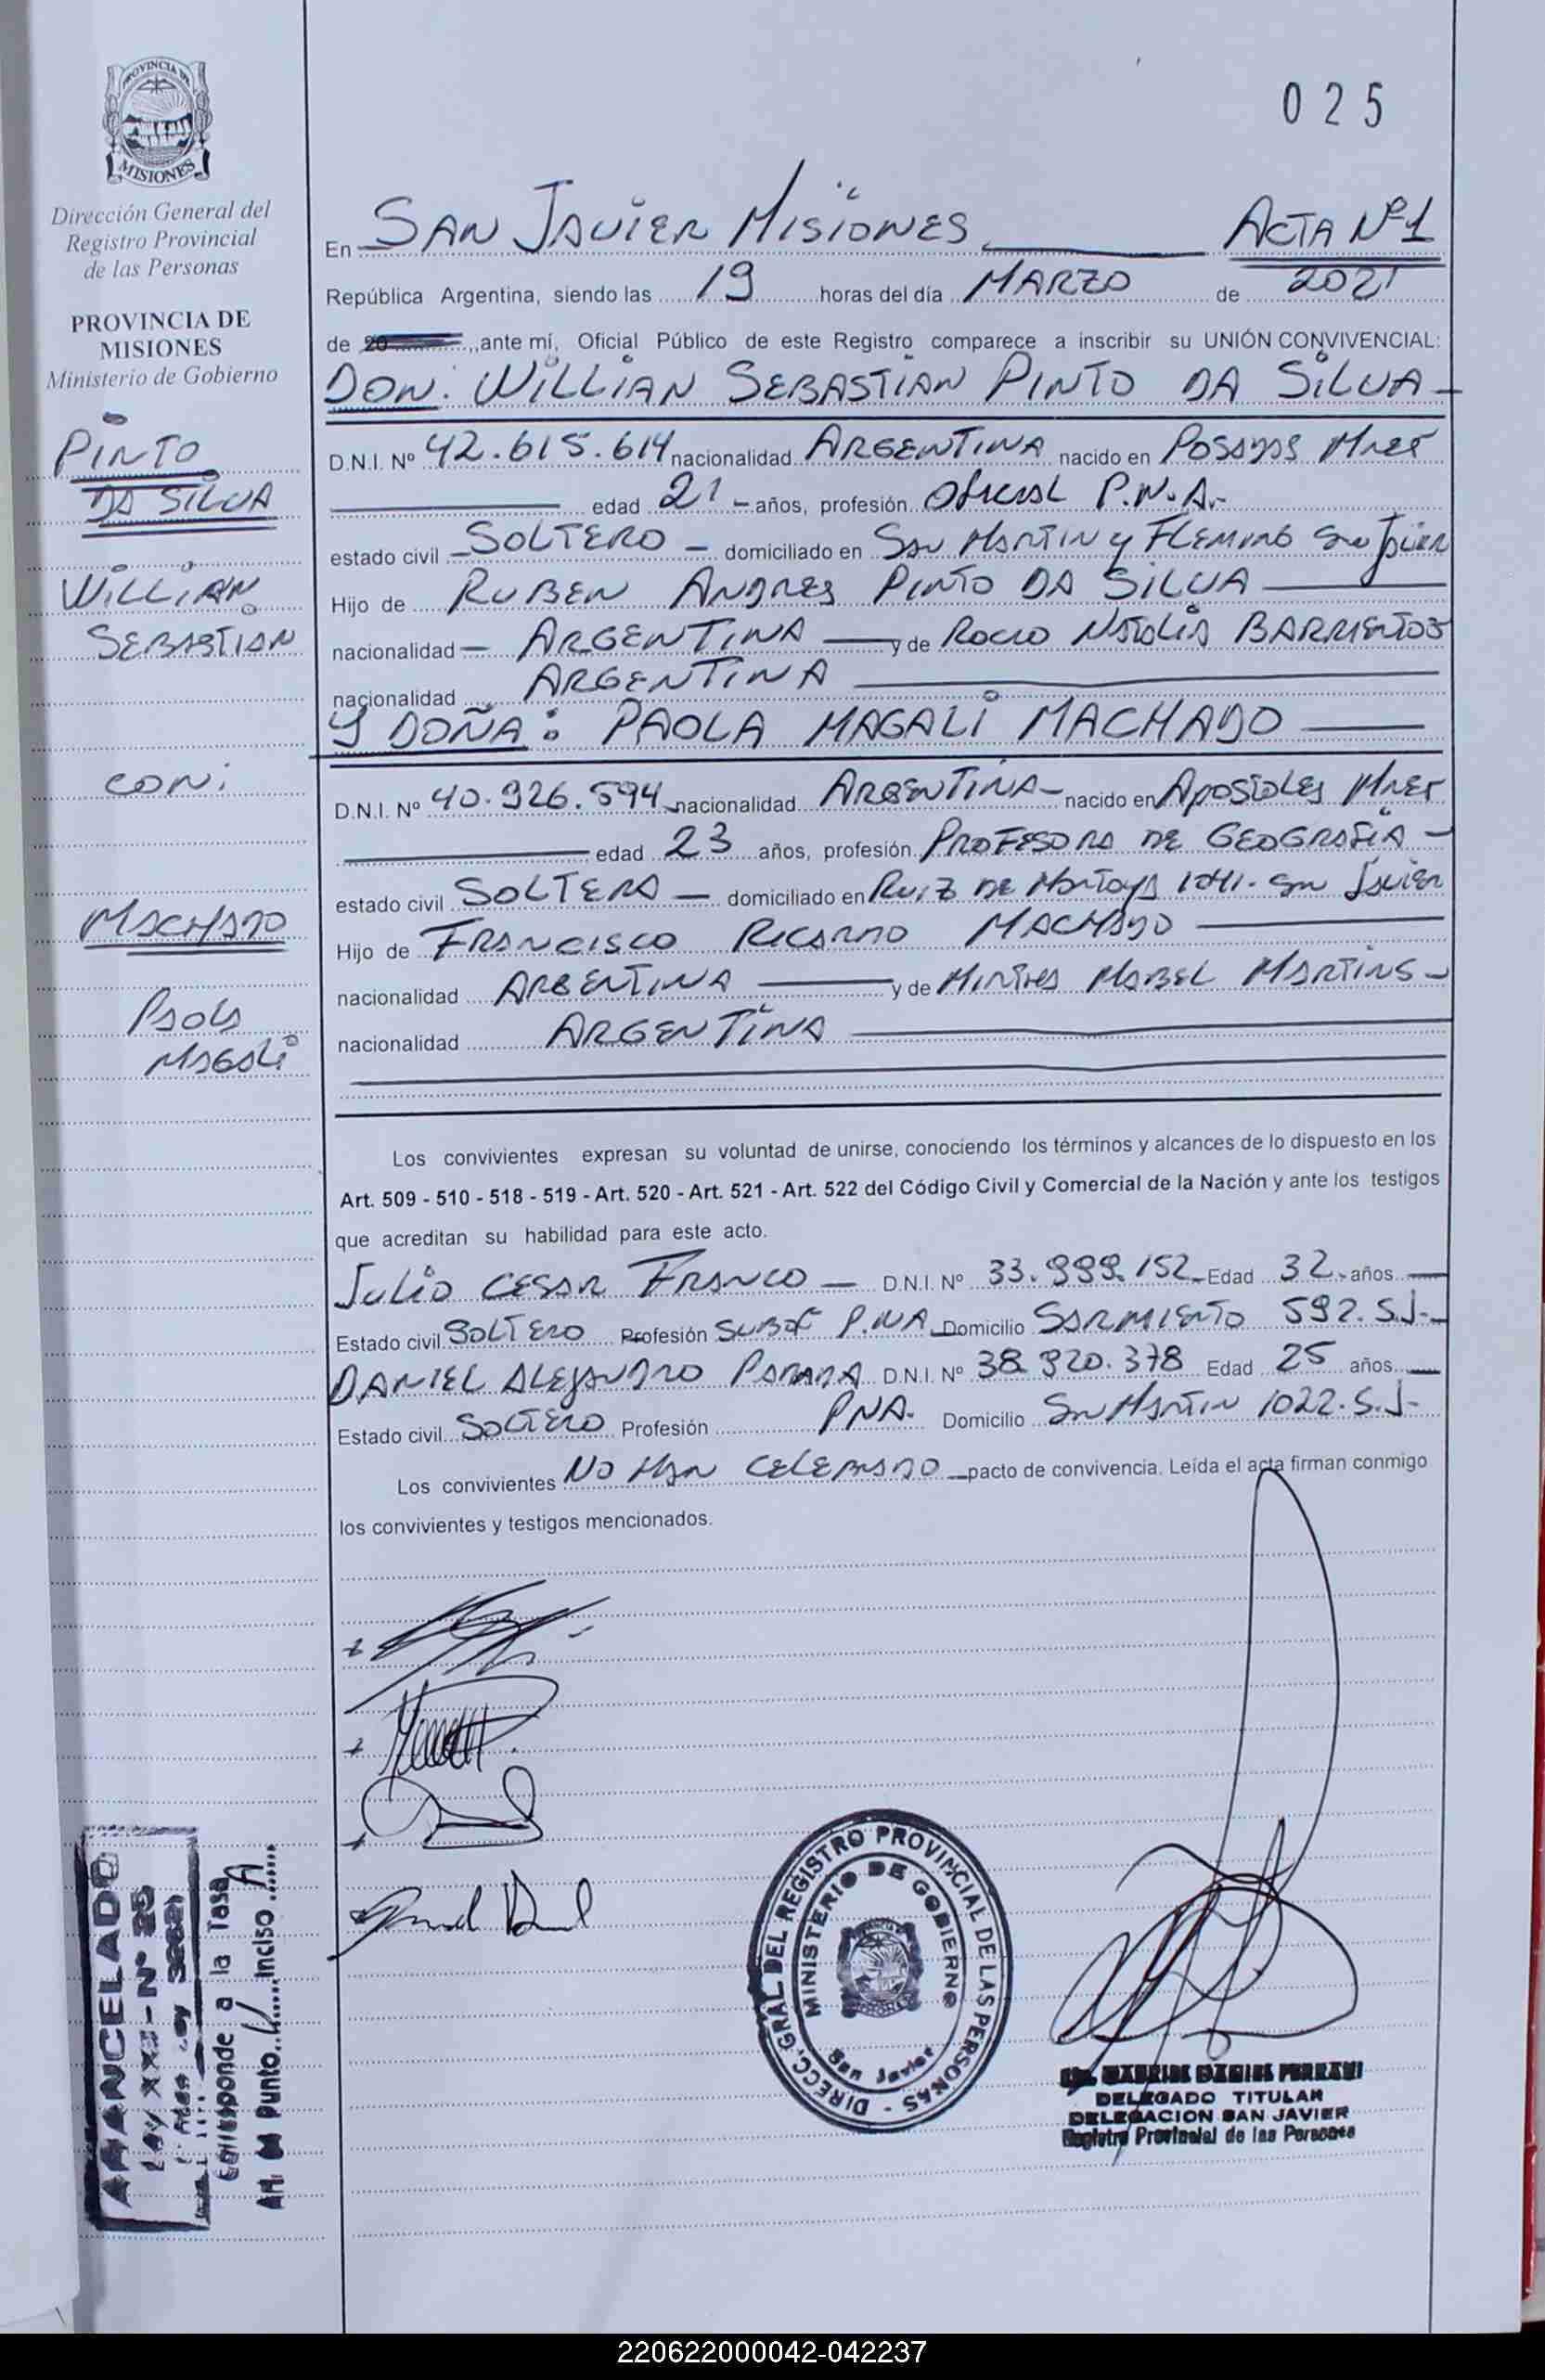 025
PROVINCIA DE
MISIONES
Dirección General del
Registro Provincial
de las Personas
PROVINCIA DE
MISIONES
Ministerio de Gobierno
PINTO
DA SILVA
WILLIAN
SEBASTIAN
CON:
MACHADO
PAOLA
MAGALI
En SAN JAVIER MISIONES ACTA Nº1
República Argentina, siendo las 19 horas del día MARZO de 2021
de 20 ,ante mí, Oficial Público de este Registro comparece a inscribir su UNIÓN CONVIVENCIAL:
DON: WILLIAN SEBASTIAN PINTO DA SILVA
D.N.I. Nº 42.615.614 nacionalidad ARGENTINA nacido en POSADAS Mnes
edad 21 años, profesión Oficial P.N.A.
estado civil SOLTERO domiciliado en SAN MARTIN y FLEMING San Javier
Hijo de RUBEN ANDRES PINTO DA SILVA
nacionalidad ARGENTINA y de ROCIO NATALIA BARRIENTOS
nacionalidad ARGENTINA
Y DOÑA: PAOLA MAGALI MACHADO
D.N.I. Nº 40.926.594 nacionalidad ARGENTINA nacido en APOSTOLES Mnes
edad 23 años, profesión PROFESORA DE GEOGRAFIA
estado civil SOLTERA domiciliado en RUIZ DE MONTOYA 1041. San Javier
Hijo de FRANCISCO RICARDO MACHADO
nacionalidad ARGENTINA y de MIRTHA MABEL MARTINS
nacionalidad ARGENTINA
Los convivientes expresan su voluntad de unirse, conociendo los términos y alcances de lo dispuesto en los
Art. 509 - 510 - 518 - 519 - Art. 520 - Art. 521 - Art. 522 del Código Civil y Comercial de la Nación y ante los testigos
que acreditan su habilidad para este acto.
JULIO CESAR FRANCO D.N.I. Nº 33.999.152 Edad 32 años
Estado civil SOLTERO Profesión SUBOF P.N.A Domicilio SARMIENTO 592. S.J.
DANIEL ALEJANDRO D.N.I. Nº 38.920.378 Edad 25 años
Estado civil SOLTERO Profesión PNA. Domicilio San MARTIN 1022. S.J.
Los convivientes NO HAN CELEBRADO pacto de convivencia. Leída el acta firman conmigo
los convivientes y testigos mencionados.
ARANCELADO
Ley XXII - Nº 25
Corresponde a la Tasa
Art. Punto Inciso A
DIRECC. GRAL DEL REGISTRO PROVINCIAL DE LAS PERSONAS -
MINISTERIO DE GOBIERNO
San Javier
DELEGADO TITULAR
DELEGACION SAN JAVIER
Registro Provincial de las Personas
220622000042-042237